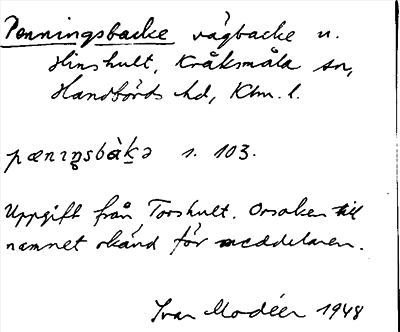 Penningsbacke vägbacke n.
Hinshult, Kråksmåla sn,
Handbörds hd, Klm. l.
pænıŋsbàk̠ə s. 103.
Uppgift från Torshult. Orsaken till
namnet okänd för meddelaren.
Ivar Modéer 1948